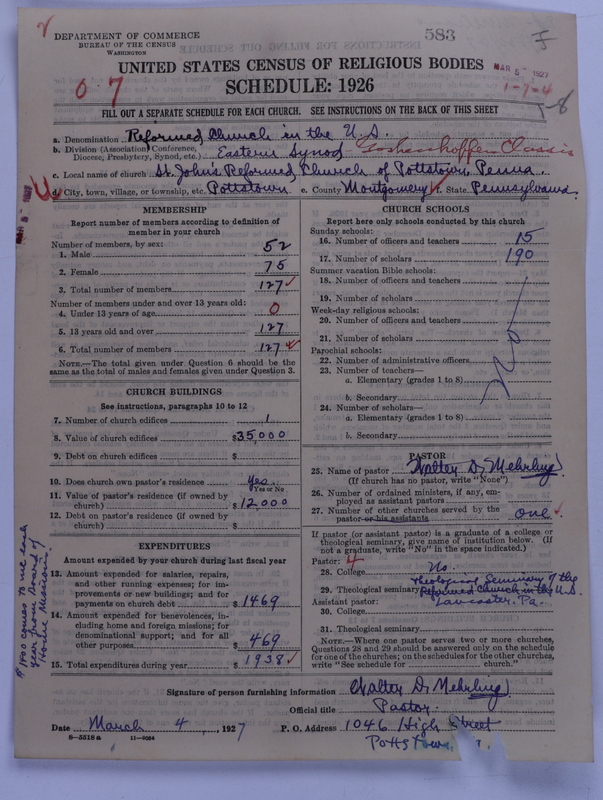 DEPARTMENT OF COMMERCE
BUREAU OF THE CENSUS
WASHINGTON
583
UNITED STATES CENSUS OF RELIGIOUS BODIES
MAR 5 - 1927
SCHEDULE: 1926
0 7
1-7-4
8
FILL OUT A SEPARATE SCHEDULE FOR EACH CHURCH. SEE INSTRUCTIONS ON THE BACK OF THIS SHEET
a. Denomination Reformed Church in the U.S.
b. Division (Association, Conference, Diocese, Presbytery, Synod, etc.) Eastern Synod Goshenhoppen Classis
c. Local name of church St. John's Reformed Church of Pottstown, Penna.
d. City, town, village, or township, etc. Pottstown e. County Montgomery State Pennsylvania
MEMBERSHIP
Report number of members according to definition of
member in your church
Number of members, by sex:
1. Male 52
2. Female 75
3. Total number of members 127
Number of members under and over 13 years old:
4. Under 13 years of age 0
5. 13 years old and over 127
6. Total number of members 127
NOTE.—The total given under Question 6 should be the
same as the total of males and females given under Question 3.
CHURCH BUILDINGS
See instructions, paragraphs 10 to 12
7. Number of church edifices 1
8. Value of church edifices $35,000
9. Debt on church edifices $
10. Does church own pastor's residence Yes
Yes or No
11. Value of pastor's residence (if owned by
church) $12000
12. Debt on pastor's residence (if owned by
church) $
EXPENDITURES
Amount expended by your church during last fiscal year
13. Amount expended for salaries, repairs,
and other running expenses; for im-
provements or new buildings; and for
payments on church debt $1469
14. Amount expended for benevolences, in-
cluding home and foreign missions; for
denominational support; and for all
other purposes $469
15. Total expenditures during year $1938
$1000 comes to me each
year from Board of
Home Missions.
CHURCH SCHOOLS
Report here only schools conducted by this church
Sunday schools:
16. Number of officers and teachers 15
17. Number of scholars 190
Summer vacation Bible schools:
18. Number of officers and teachers
19. Number of scholars
Week-day religious schools:
20. Number of officers and teachers
21. Number of scholars
No
Parochial schools:
22. Number of administrative officers
23. Number of teachers—
a. Elementary (grades 1 to 8)
b. Secondary
24. Number of scholars—
a. Elementary (grades 1 to 8)
b. Secondary
PASTOR
25. Name of pastor Walter D. Mehrling
(If church has no pastor, write "None")
26. Number of ordained ministers, if any, em-
ployed as assistant pastors
27. Number of other churches served by the
pastor or his assistants one
If pastor (or assistant pastor) is a graduate of a college or
theological seminary, give name of institution below. (If
not a graduate, write "No" in the space indicated.)
Pastor: 4
28. College No.
29. Theological seminary Theological Seminary of the
Reformed Church in the U.S.
Assistant pastor: Lancaster, Pa.
30. College
31. Theological seminary
NOTE.—Where one pastor serves two or more churches,
Questions 28 and 29 should be answered only on the schedule
for one of the churches; on the schedules for the other churches,
write "See schedule for church."
Signature of person furnishing information Walter D. Mehrling
Official title Pastor
Date March 4, 1927 P. O. Address 1046 High Street
8—5518a 11—9064
Pottstown